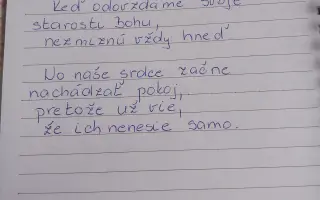 Keď odovzdáme svoje
starosti Bohu,
nezmiznú vždy hneď
No naše srdce začne
nachádzať pokoj,
pretože už vie,
že ich nenesie samo.